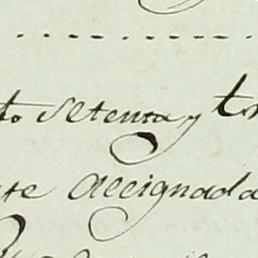 to Setenta y tr
te accignada